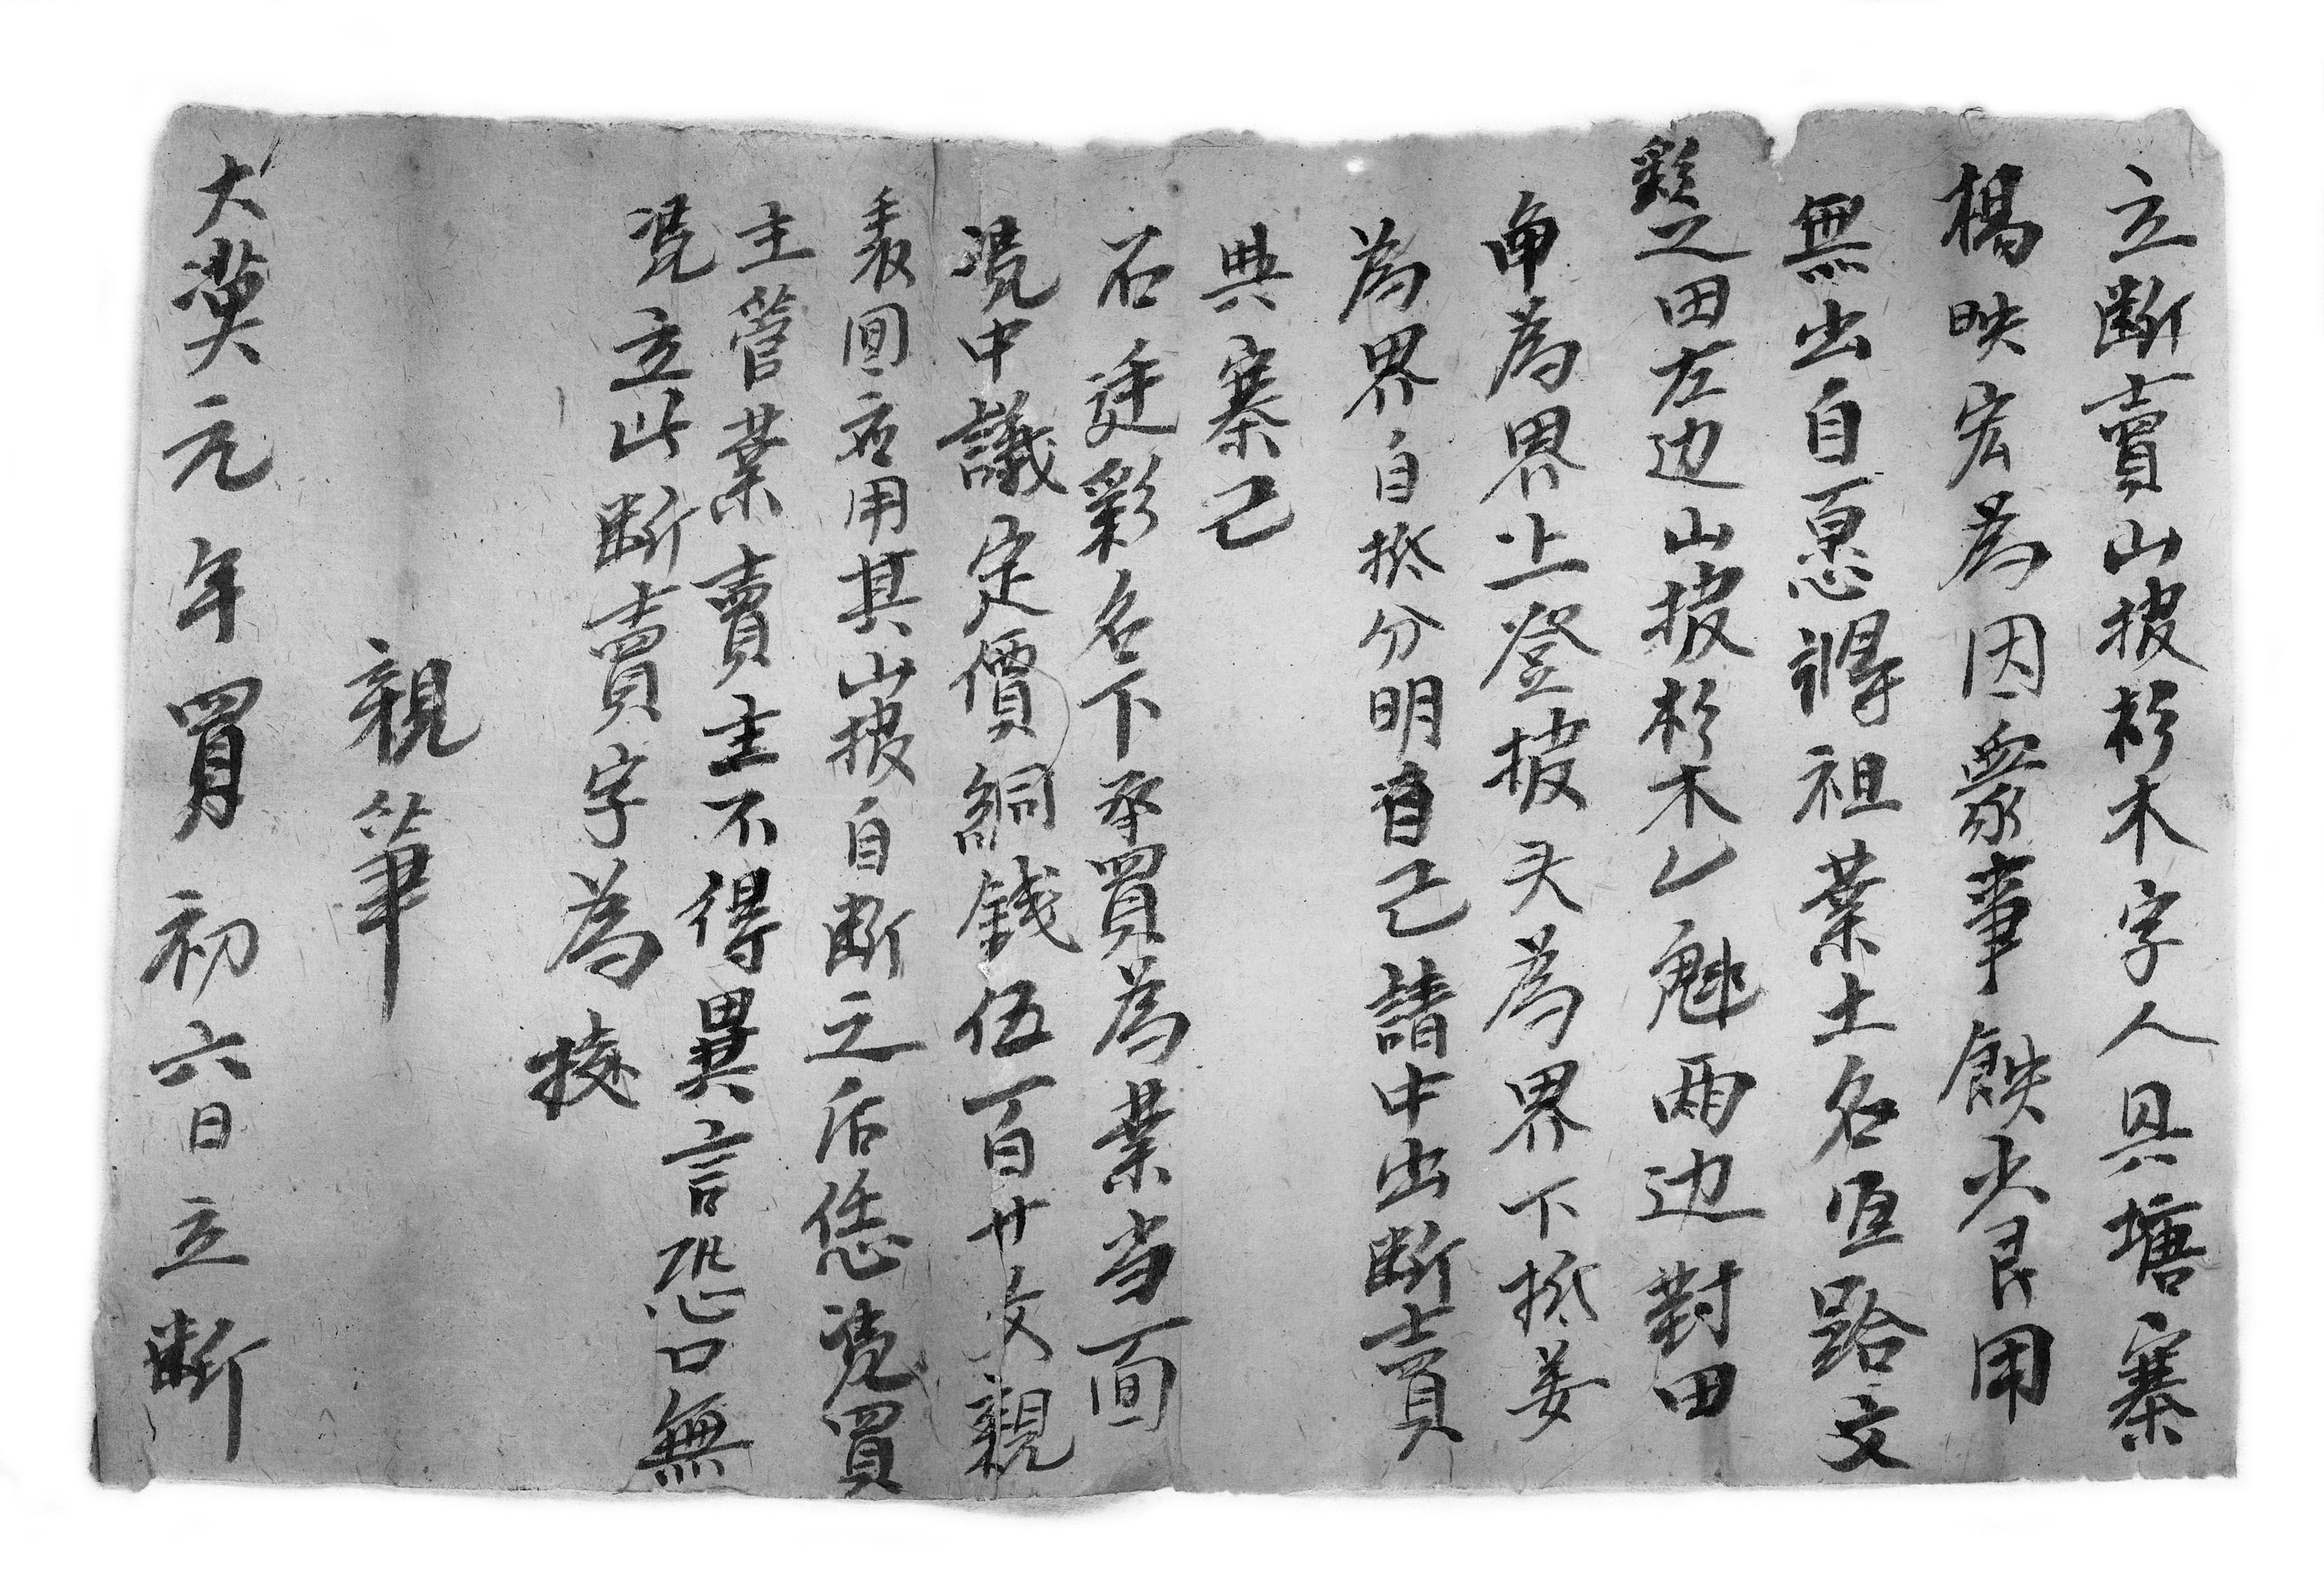 立断賣山披杉木字人具塘寨
楊映宏為因衆事蝕少艮用
無出自愿㝵祖業土名恒路文
彩之田左边山披杉木山魁兩边對田
角為界上登披头為界下抵姜
為界自抵分明自己請中出断賣
典寨已
石廷彩名下承買為業当面
凭中議定價銅錢伍百廿文親
表回应用其山披自断之后恁凴買
主管業賣主不得異言恐口無
凴立此断賣字為據
親筆
大漢元年買初六日立断